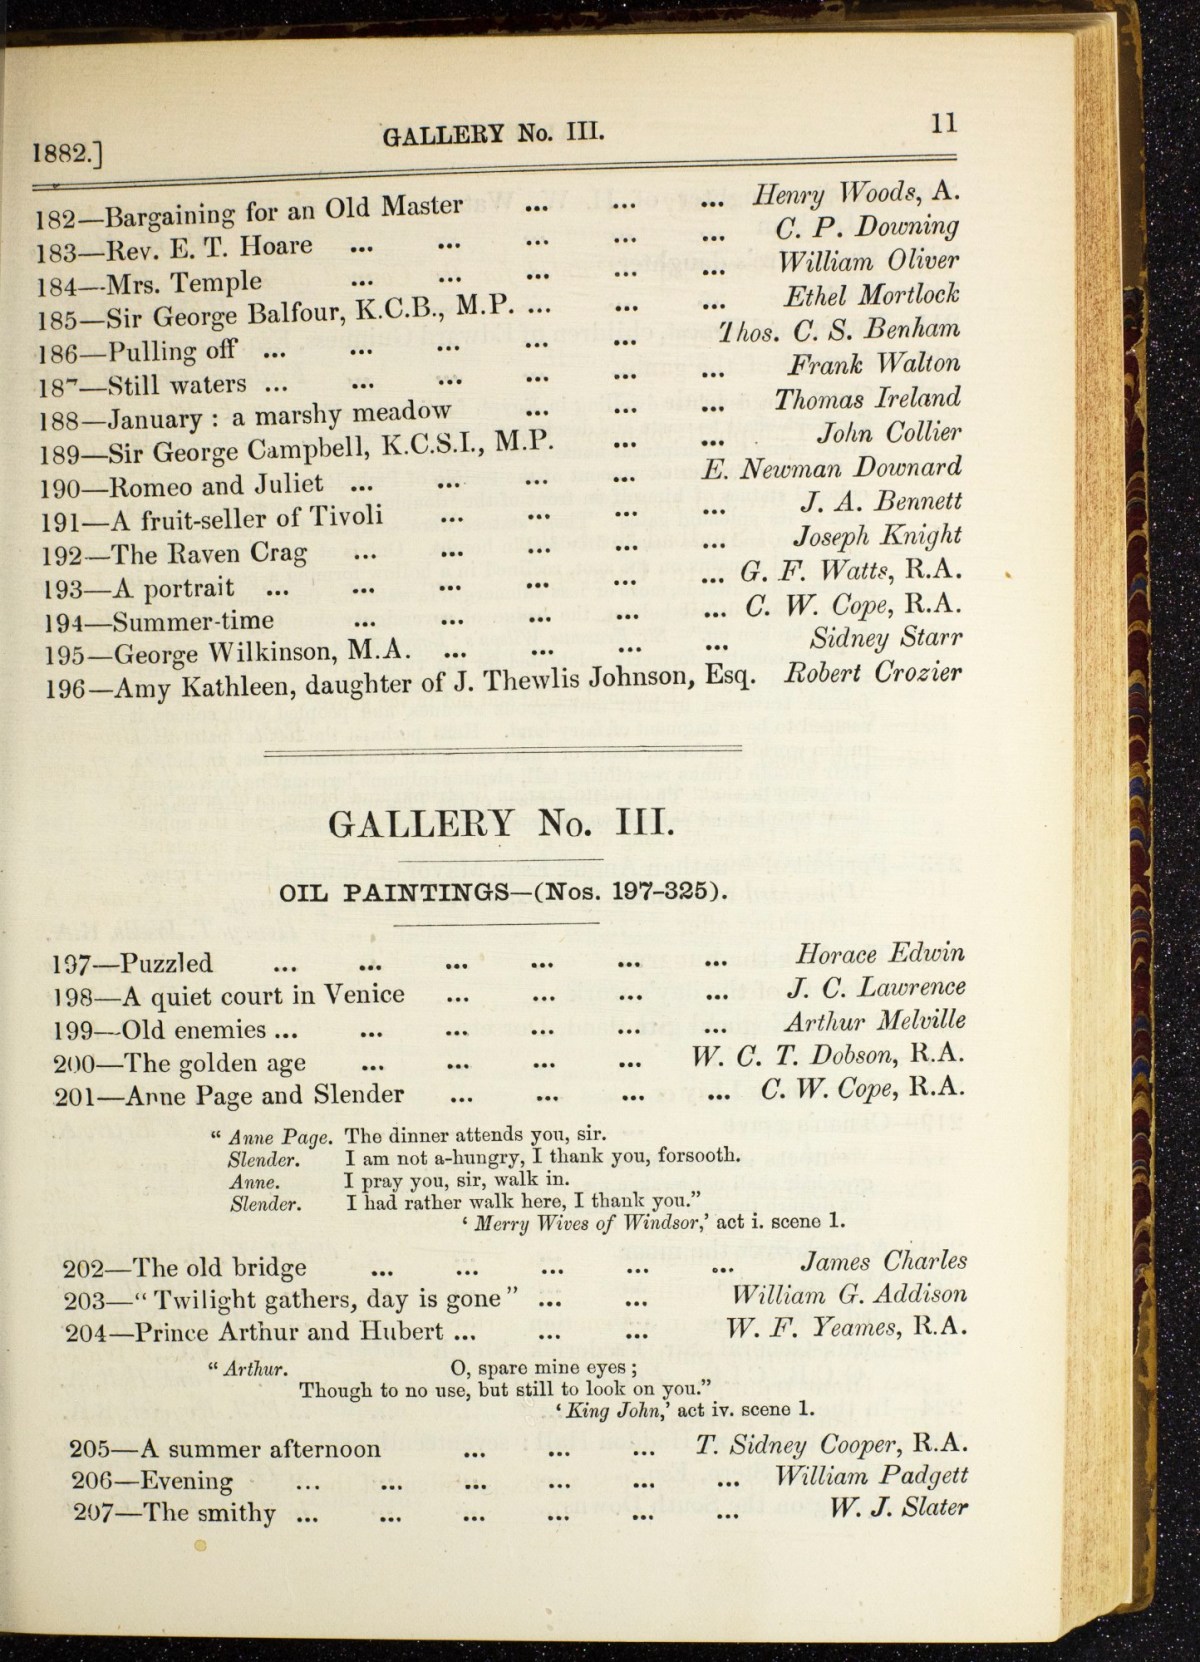 1882.] GALLERY No. III. 11
182—Bargaining for an Old Master ... ... ... Henry Woods, A.
183—Rev. E. T. Hoare ... ... ... ... ... C. P. Downing
184—Mrs. Temple ... ... ... ... ... William Oliver
185—Sir George Balfour, K.C.B., M.P. ... ... ... Ethel Mortlock
186—Pulling off ... ... ... ... ... Thos. C. S. Benham
187—Still waters ... ... ... ... ... ... Frank Walton
188—January : a marshy meadow ... ... ... Thomas Ireland
189—Sir George Campbell, K.C.S.I., M.P. ... ... John Collier
190—Romeo and Juliet ... ... ... ... E. Newman Downard
191—A fruit-seller of Tivoli ... ... ... ... J. A. Bennett
192—The Raven Crag ... ... ... ... ... Joseph Knight
193—A portrait ... ... ... ... ... ... G. F. Watts, R.A.
194—Summer-time ... ... ... ... ... C. W. Cope, R.A.
195—George Wilkinson, M.A. ... ... ... ... Sidney Starr
196—Amy Kathleen, daughter of J. Thewlis Johnson, Esq. Robert Crozier
GALLERY No. III.
OIL PAINTINGS—(Nos. 197-325).
197—Puzzled ... ... ... ... ... ... Horace Edwin
198—A quiet court in Venice ... ... ... ... J. C. Lawrence
199—Old enemies ... ... ... ... ... ... Arthur Melville
200—The golden age ... ... ... ... W. C. T. Dobson, R.A.
201—Anne Page and Slender ... ... ... ... C. W. Cope, R.A.
“ Anne Page. The dinner attends you, sir.
Slender. I am not a-hungry, I thank you, forsooth.
Anne. I pray you, sir, walk in.
Slender. I had rather walk here, I thank you.”
‘ Merry Wives of Windsor,’ act i. scene 1.
202—The old bridge ... ... ... ... ... James Charles
203—“ Twilight gathers, day is gone ” ... ... William G. Addison
204—Prince Arthur and Hubert ... ... ... W. F. Yeames, R.A.
“ Arthur. O, spare mine eyes ;
Though to no use, but still to look on you.”
‘ King John,’ act iv. scene 1.
205—A summer afternoon ... ... ... T. Sidney Cooper, R.A.
206—Evening ... ... ... ... ... ... William Padgett
207—The smithy ... ... ... ... ... ... W. J. Slater